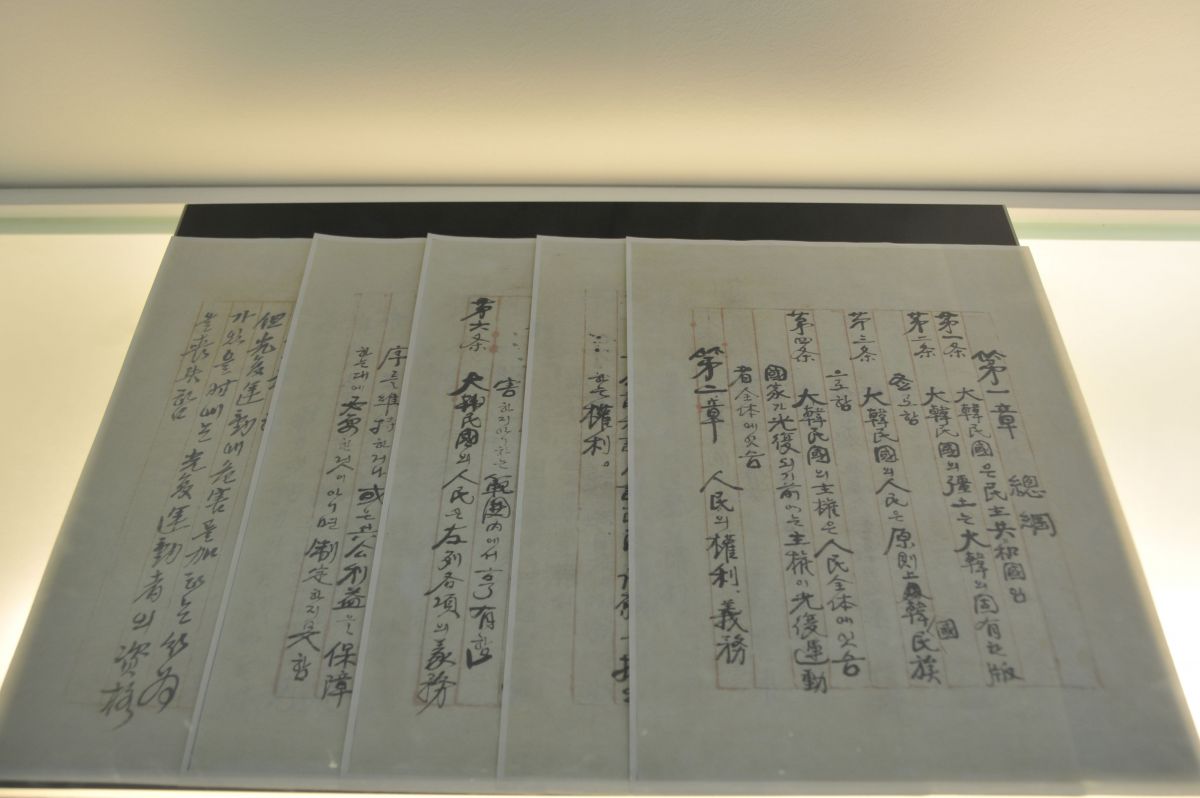 第一章 總綱
第一条 大韓民國은民主共和國임
第二条 大韓民國의疆土는大韓의固有한版
圖로함
第三条 大韓民國의人民은原則上韓國民族
으로함
第四条 大韓民國의主權은人民全体에잇슴
國家가光復되기前에는主權이光復運動
者全体에잇슴
第二章 人民의權利、義務
하는權利。
害하지안이하는範圍內에서享有함
第六条 大韓民國의人民은左列各項의義務
序를維持하거나或은公共利益을保障
하는대에必要한것이아니면制定하지못함
但光復運動에危害를加하는行為
가잇을時에는光復運動者의資格
을喪失함